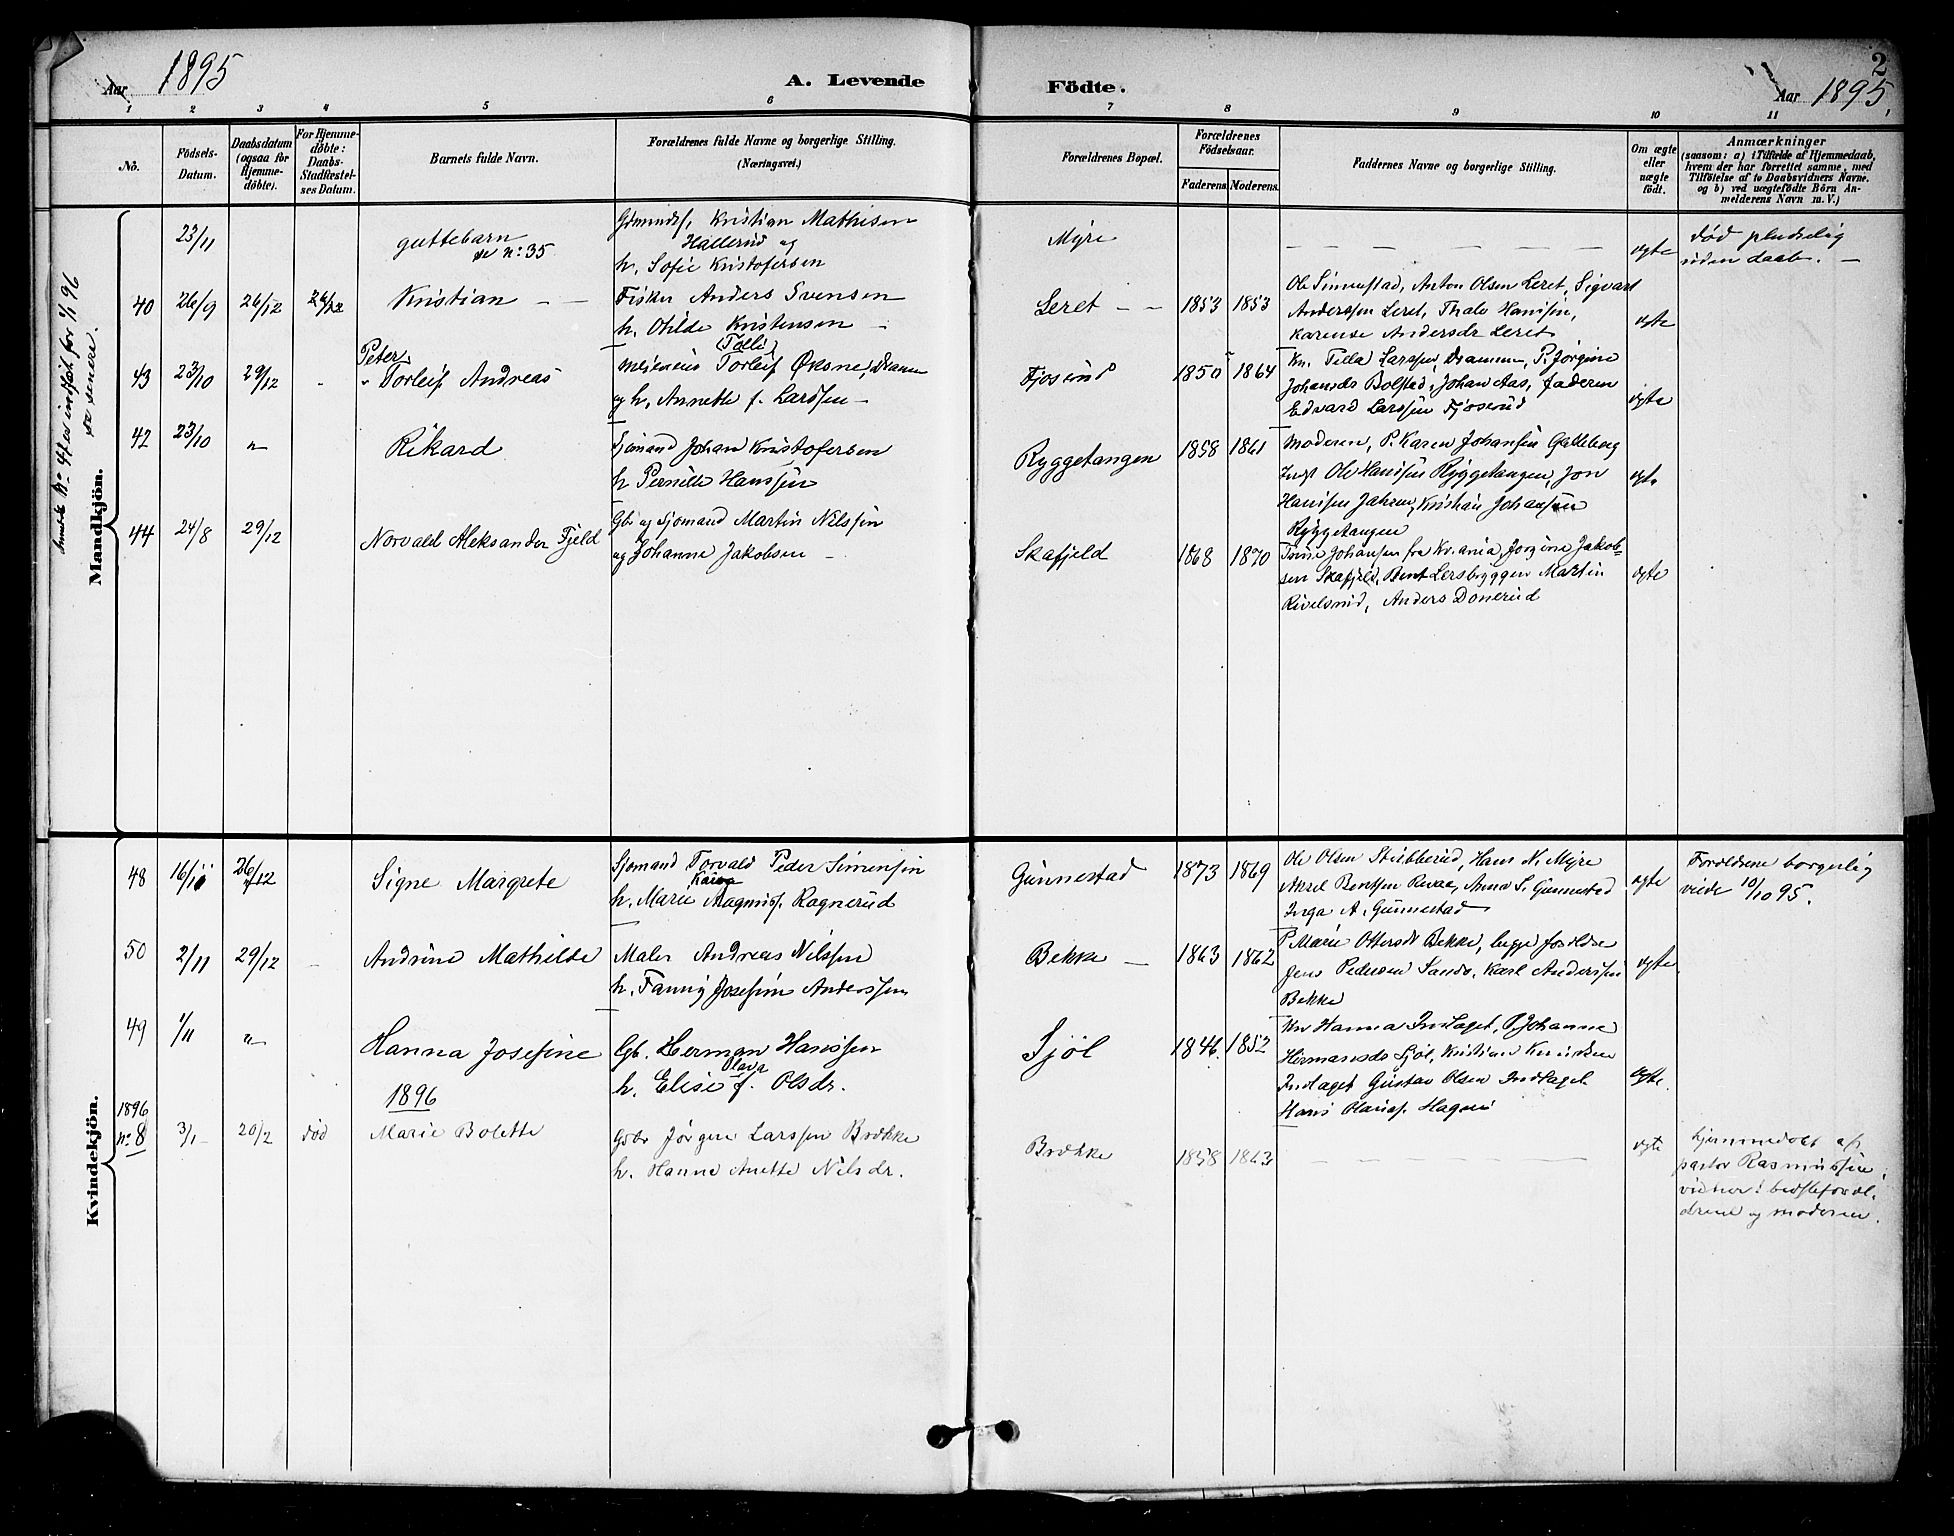 Aar 1895
A. Levende Födte.
Aar 1895
2
1 2 3 4 5 6 7 8 9 10 11
No.
Födsels-Datum.
Daabsdatum (ogsaa for Hjemme-döbte).
For Hjemme-döbte: Daabs-Stadfæstel-ses Datum.
Barnets fulde Navn.
Forældrenes fulde Navne og borgerlige Stilling. (Næringsvei.)
Forældrenes Bopæl.
Forældrenes Födselsaar.
Faderens. Moderens.
Faddernes Navne og borgerlige Stilling.
Om ægte eller uægte födt.
Anmærkninger
(saasom: a) i Tilfælde af Hjemmedaab,
hvem der har forrettet samme, med
Tilföielse af to Daabsvidners Navne.
og b) ved uægtefödte Börn An-
melderens Navn m. V.)
Mandkjön.
23/11
guttebarn
se no: 35
Kristian Mathisen
Hallerud og
h. Sofie Kristofersen
Myre
ægte
død pludselig
uden daab. —
40 26/9 26/12 26/12
Kristian — —
Fisker Anders Svensen
h. Otilde Kristensen —
Leret — —
1853 1853
Ole Sinnestad, Anton Olsen Leret, Sigvart
Anderssen Leret, Thale Hanssen,
Karense Andersdr Leret
ægte
43 23/10 29/12 -
Peter
Torleif Andreas
(Tolli)
Torleif Øksne, Dramn
og h. Annette f. Larssen —
Fjøserud
1850 1864
Kn. Tilla Larssen, Dramm, P. Jørgine
Johansdr Bolstad, Johan Aas, faderen
Edvard Larssen Fjøserud
ægte
42 23/10 "
Rikard
Sjømand Johan Kristofersen
h Pernille Hanssen
Ryggetangen
1858 1861
Moderen, P. Karen Johansen Galleberg
Ole Hanssen Ryggetangen, Jon
Hanssen Jahren, Kristian Johansen
Ryggetangen
ægte
44 24/8 29/12
Norvald Aleksander Fjeld
Gbr og Sjømand Martin Nilssen
og Johanne Jakobsen —
Skafjeld
1868 1870
Johansen fra Kr.ania, Jørgine Jakob-
sen Skafjeld, Bent Lersbryggen Martin
Rivelsrud, Anders Donerud
ægte
Kvindekjön.
48 16/10 26/12
Signe Margrete
Sjømand Torvald Peder Simensen
h. Marie Magnuss. Ragnerud
Gunnestad
1873 1869
Ole Olsen Stubberud, Hans N. Myre
Aksel Bentsen Revaa, Anna S. Gunnestad
Inga A. Gunnestad
ægte
Forældrene borgerlig
viede 10/10 95.
50 2/11 29/12 -
Andrine Mathilde
Maler Andreas Nilssen
h. Fanny Josefine Anderssen
Bekke —
1863 1862
P Marie Ottersdr Bekke, begge forældre
Jens Pedersen Sando, Karl Anderssen
Bekke
ægte
49 1/11 "
Hanna Josefine
Gb. Herman Hanssen
Olava
h. Elise f. Olsdr.
Sjøl
1846. 1852
Kn Hanna Indlaget, P. Johanne
Hermansdr Sjøl, Kristian Knudsen
Indlaget Gustav Olsen Indlaget
Hans Hagen
ægte.
1896
1896
no 8 3/1 20/2 død
Marie Bolette
Gbr Jørgen Larssen Brekke
h. Hanne Anette Nilsdr.
Brekke
1858 1863
ægte
hjemmedøbt af
pastor Rasmussen.
vidner: bedsteforæl-
drene og moderen.